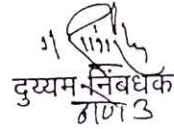 दुय्यम निबंधक
ठाणे 3